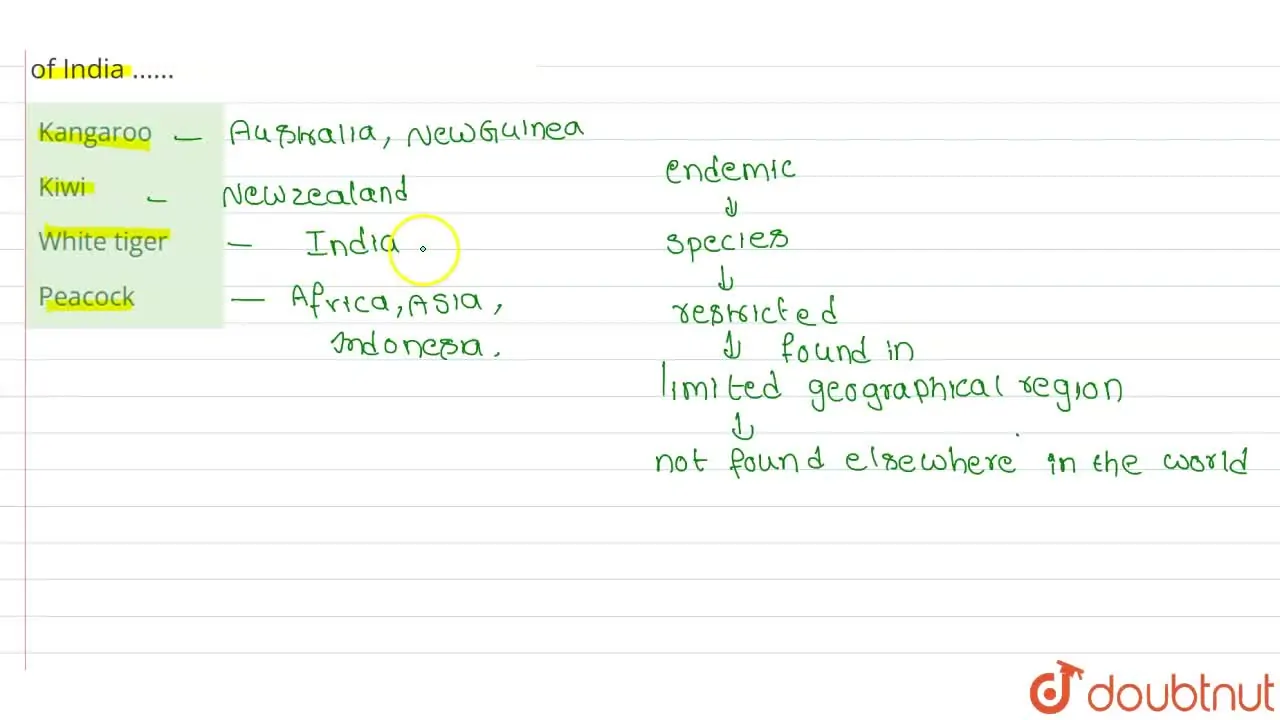 of India ......
Kangaroo – Australia, NewGuinea
Kiwi – Newzealand
White tiger – India
Peacock – Africa, Asia,
Indonesia.
endemic
↓
species
↓
restricted
↓ found in
limited geographical region
↓
not found elsewhere in the world
doubtnut